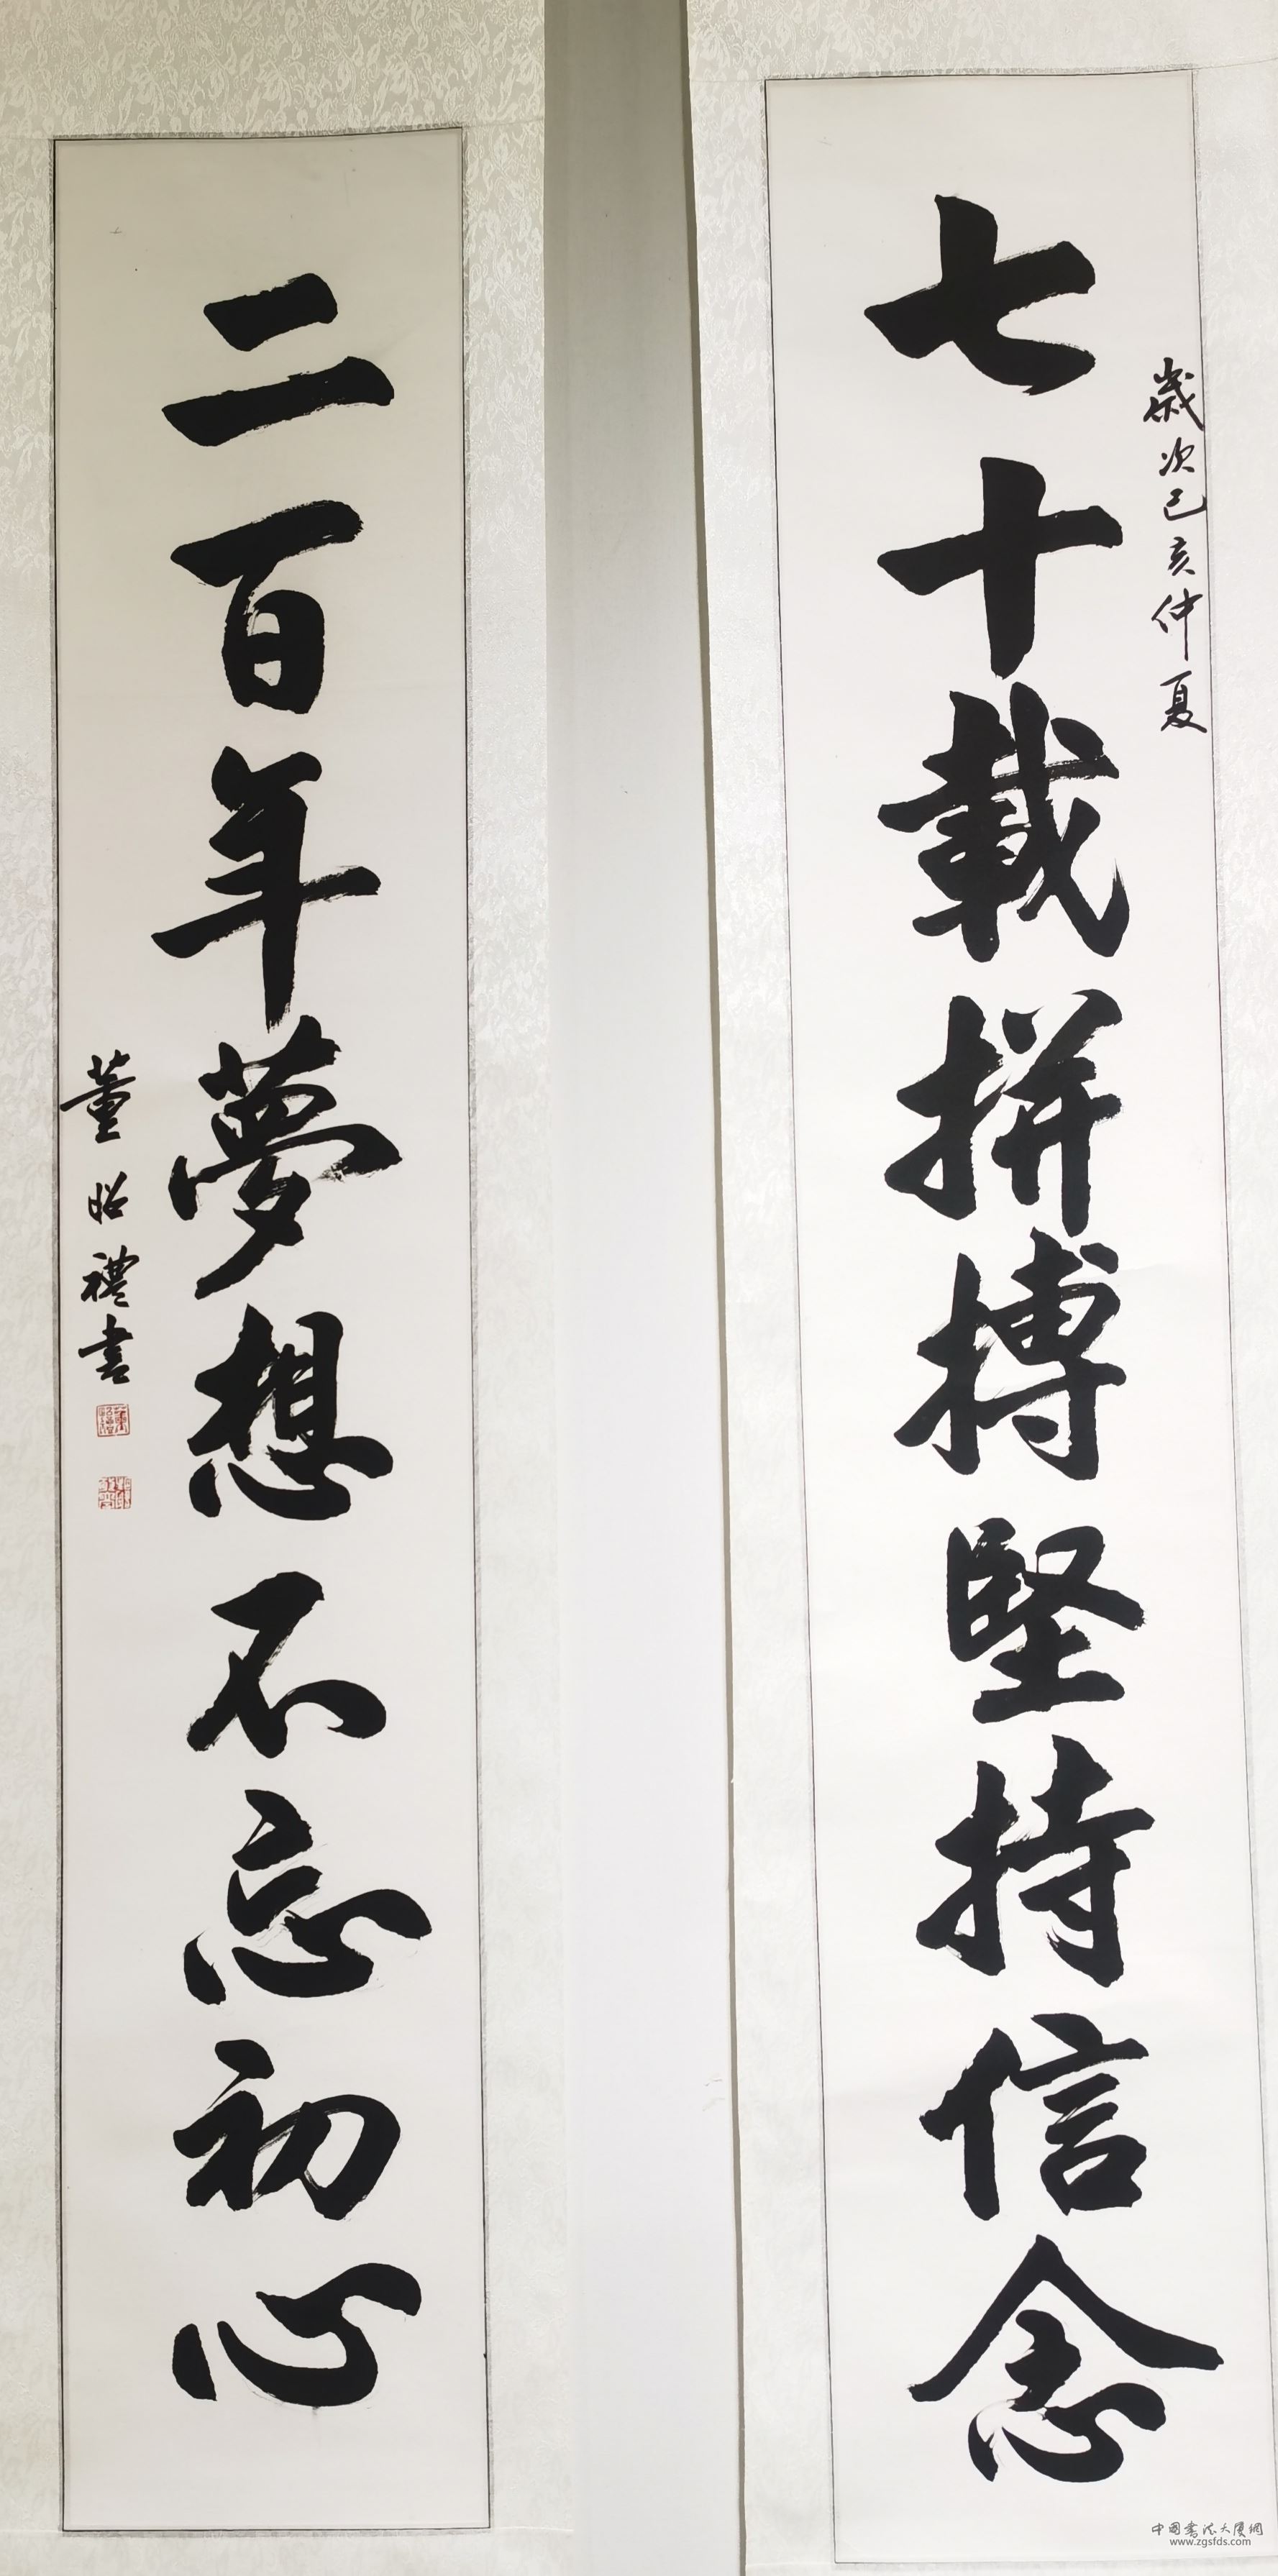 歲次己亥仲夏
七十載拼搏堅持信念
二百年夢想不忘初心
董昭禮書
中國書法大廈網
www.zgsfds.com